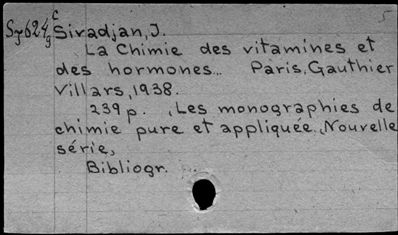 c 5
Sy624g Siradjan, J.
La Chimie des vitamines et
des hormones... Paris, Gauthier
Villars, 1938.
239 p. , Les monographies de
chimie pure et appliquée, Nouvelle
série,
Bibliogr.